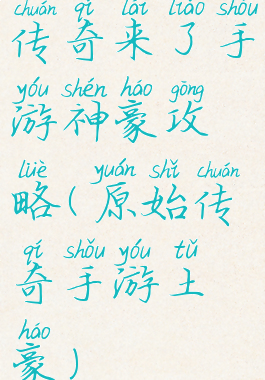 chuán qí lái liǎo shǒu
传奇来了手
yóu shén háo gōng
游神豪攻
lüè yuán shǐ chuán
略(原始传
qí shǒu yóu tǔ
奇手游土
háo
豪)